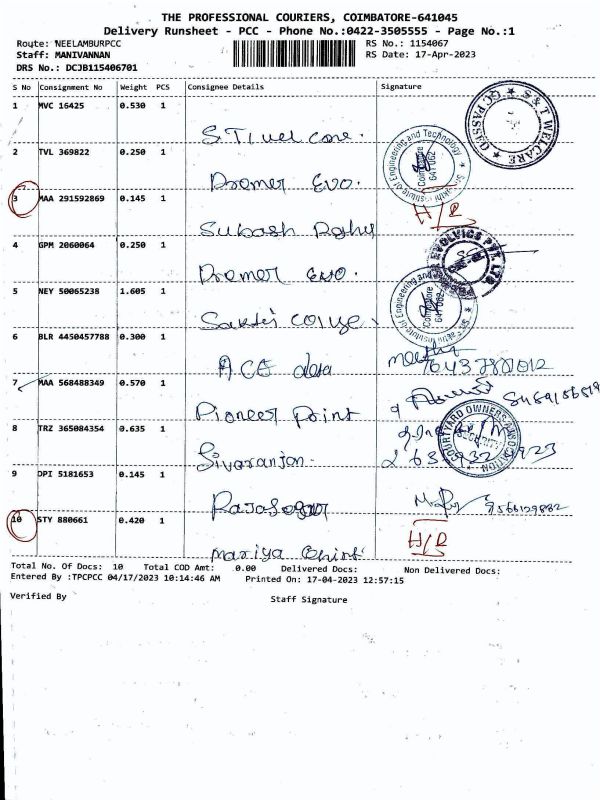 THE PROFESSIONAL COURIERS, COIMBATORE-641045
Delivery Runsheet - PCC - Phone No.:0422-3505555 - Page No.:1
Route: NEELAMBURPCC
RS No.: 1154067
Staff: MANIVANNAN
RS Date: 17-Apr-2023
DRS No.: DCJB115406701
S No Consignment No Weight PCS Consignee Details Signature
1 MVC 16425 0.530 1
S.T wel care.
S&T WELCARE
GC PASSED
2 TVL 369822 0.250 1
Institute of Engineering and Technology
Coimbatore
641 062
Dromer EVO.
3 MAA 291592869 0.145 1
H/R
Subash
4 GPM 2060064 0.250 1
EVOLVICS PVT. LTD.
Dromer EVO.
5 NEY 50065238 1.605 1
Institute of Engineering and
Coimbatore
641 062
Sakthi
6 BLR 4450457788 0.300 1
ACE
7 MAA 568488349 0.570 1
Pioneer Point
8 TRZ 365084354 0.635 1
COURTYARD OWNERS ASSOCIATION
SECURITY
Sivaranjan.
9 DPI 5181653 0.145 1
9566129882
10 STY 880661 0.420 1
H/R
Mariya
Total No. Of Docs: 10 Total COD Amt: 0.00 Delivered Docs: Non Delivered Docs:
Entered By :TPCPCC 04/17/2023 10:14:46 AM Printed On: 17-04-2023 12:57:15
Verified By
Staff Signature